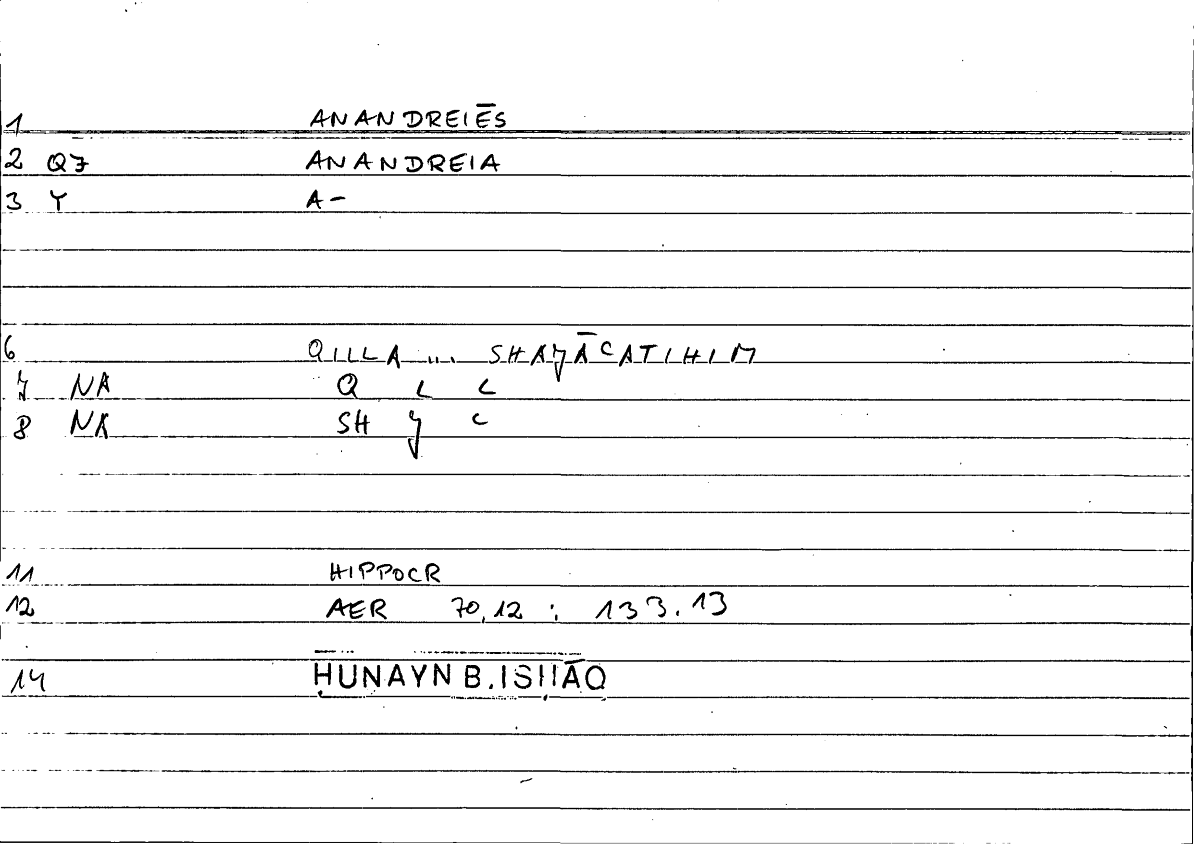 1 ANANDREIĒS
2 Q7 ANANDREIA
3 Y A-
6 QILLA ... SHAJĀCATIHIM
7 NA Q L L
8 NA SH J C
11 HIPPOCR
12 AER 70,12 : 133.13
14 ḤUNAYN B. ISḤĀQ